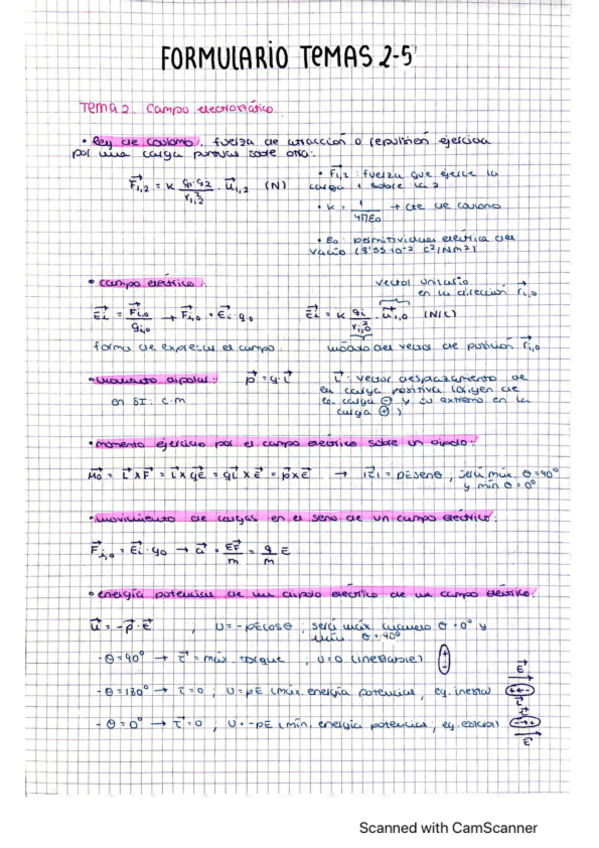 FORMULARIO TEMAS 2-5
Tema 2. Campo electrostático
• Ley de coulomb. fuerza de atracción o repulsión ejercida
por una carga puntual sobre otra:
F⃗1,2 = K q1·q2 / r²1,2 · u⃗1,2 (N)
• F⃗1,2 : fuerza que ejerce la
carga 1 sobre la 2
• K = 1 / 4πε0 → cte de coulomb
• ε0: permitividad eléctrica del
vacío
• campo eléctrico:
E⃗i = F⃗i,0 / qi,0 → F⃗i,0 = E⃗i · q0
E⃗i = K qi / r²i,0 · u⃗i,0 (N/C)
vector unitario
en la dirección r⃗i,0
forma de expresar el campo
módulo del vector de posición r⃗i,0
• momento dipolar: p⃗ = q·L⃗
en SI: C·m
L⃗: vector desplazamiento de
la carga positiva (origen de
la carga ⊖ y su extremo en la
carga ⊕)
• momento ejercido por el campo eléctrico sobre un dipolo:
M⃗o = L⃗ x F⃗ = L⃗ x qE⃗ = qL⃗ x E⃗ = p⃗ x E⃗ → |τ⃗| = pE senθ, será máx θ=90°
y mín θ=0°
• movimiento de cargas en el seno de un campo eléctrico:
F⃗i,0 = E⃗i · q0 → a⃗ = ΣF⃗ / m = q / m E
• energía potencial de un dipolo eléctrico de un campo eléctrico:
u⃗ = -p⃗·E⃗ ; U = -pE cosθ ; será máx. cuando θ = 0° y
mín θ = 90°
- θ = 90° → τ⃗ = máx. torque ; U=0 (inestable)
- θ = 180° → τ = 0 ; U = pE (máx. energía potencial, eq. inestal)
- θ = 0° → τ⃗ = 0 ; U = -pE (mín. energía potencial, eq. estable)
E⃗
E⃗
Scanned with CamScanner